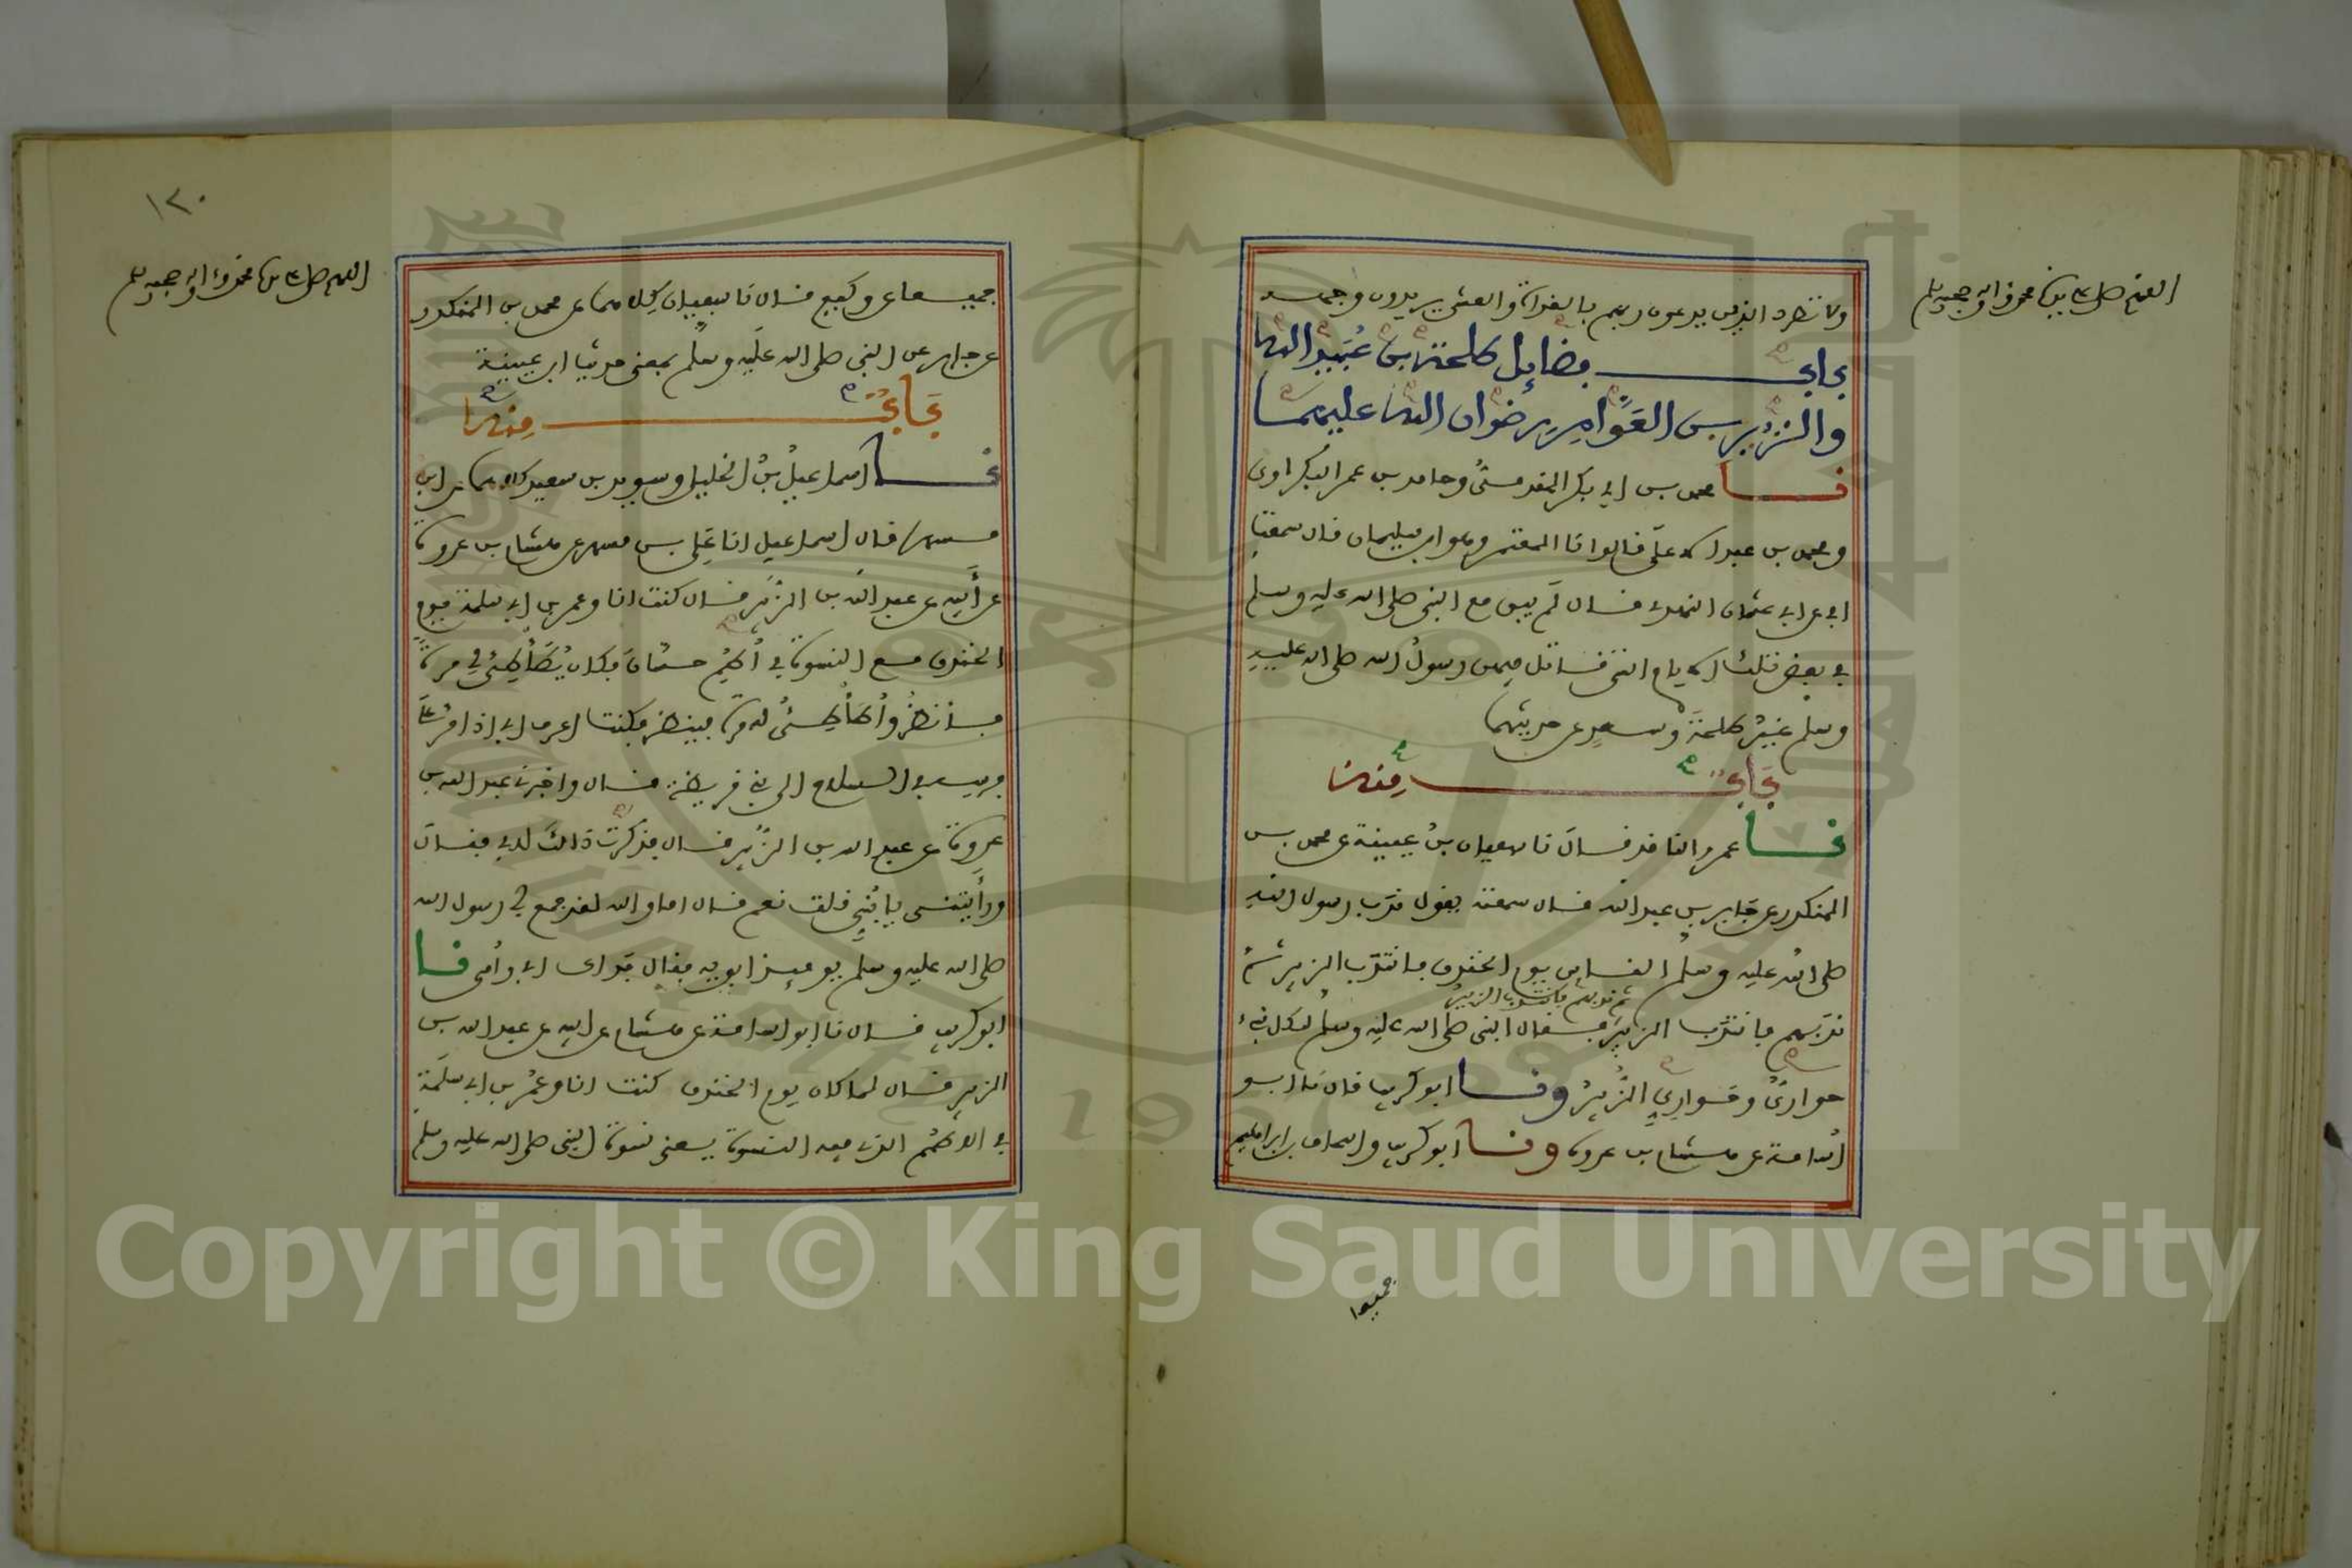 اللهم صل على سيدنا محمد وآله وصحبه وسلم
ولا تطرد الذين يدعون ربهم بالغداة والعشي يريدون وجهه
باب فضائل طلحة بن عبيد الله
والزبير بن العوام رضوان الله عليهما
نا محمد بن ابي بكر المقدمي وحامد بن عمر البكراوي
ومحمد بن عبد الاعلى قالوا نا المعتمر وهو ابن سليمان قال سمعت
ابي عن ابي عثمان النهدي قال لم يبق مع النبي صلى الله عليه وسلم
في بعض تلك الايام التي قاتل فيهن رسول الله صلى الله عليه
وسلم غير طلحة وسعد عن حديثهما
باب منه
نا عمرو الناقد قال نا سفيان بن عيينة عن محمد بن
المنكدر عن جابر بن عبد الله قال سمعته يقول ندب رسول الله
صلى الله عليه وسلم الناس يوم الخندق فانتدب الزبير ثم
ثم ندبهم فانتدب الزبير
ندبهم فانتدب الزبير فقال النبي صلى الله عليه وسلم لكل نبي
حواري وحواري الزبير ونا ابو كريب قال نا ابو
اسامة عن هشام بن عروة ونا ابو كريب واسحاق بن ابراهيم
جميعا
١٢٠
اللهم صل على سيدنا محمد وآله وصحبه وسلم
جميعا عن وكيع قال نا سفيان كلاهما عن محمد بن المنكدر
عن جابر عن النبي صلى الله عليه وسلم بمعنى حديث ابن عيينة
باب منه
نا اسماعيل بن الخليل وسويد بن سعيد كلاهما عن ابن
مسهر قال اسماعيل انا علي بن مسهر عن هشام بن عروة
عن أبيه عن عبد الله بن الزبير قال كنت انا وعمر بن ابي سلمة يوم
الخندق مع النسوة في أطم حسان فكان يطأطئ لي مرة
فأنظر وأطأطئ له مرة فينظر فكنت اعرف ابي اذا مر على
فرسه في السلاح الى بني قريظة قال واخبرني عبد الله بن
عروة عن عبد الله بن الزبير قال فذكرت ذالك لابي فقال
ورأيتني يا بني قلت نعم قال اما والله لقد جمع لي رسول الله
صلى الله عليه وسلم يومئذ ابويه فقال فداك ابي وأمي نا
ابو كريب قال نا ابو اسامة عن هشام عن ابيه عن عبد الله بن
الزبير قال لما كان يوم الخندق كنت انا وعمر بن ابي سلمة
في الاطم الذي فيه النسوة يعني نسوة النبي صلى الله عليه وسلم
Copyright © King Saud University